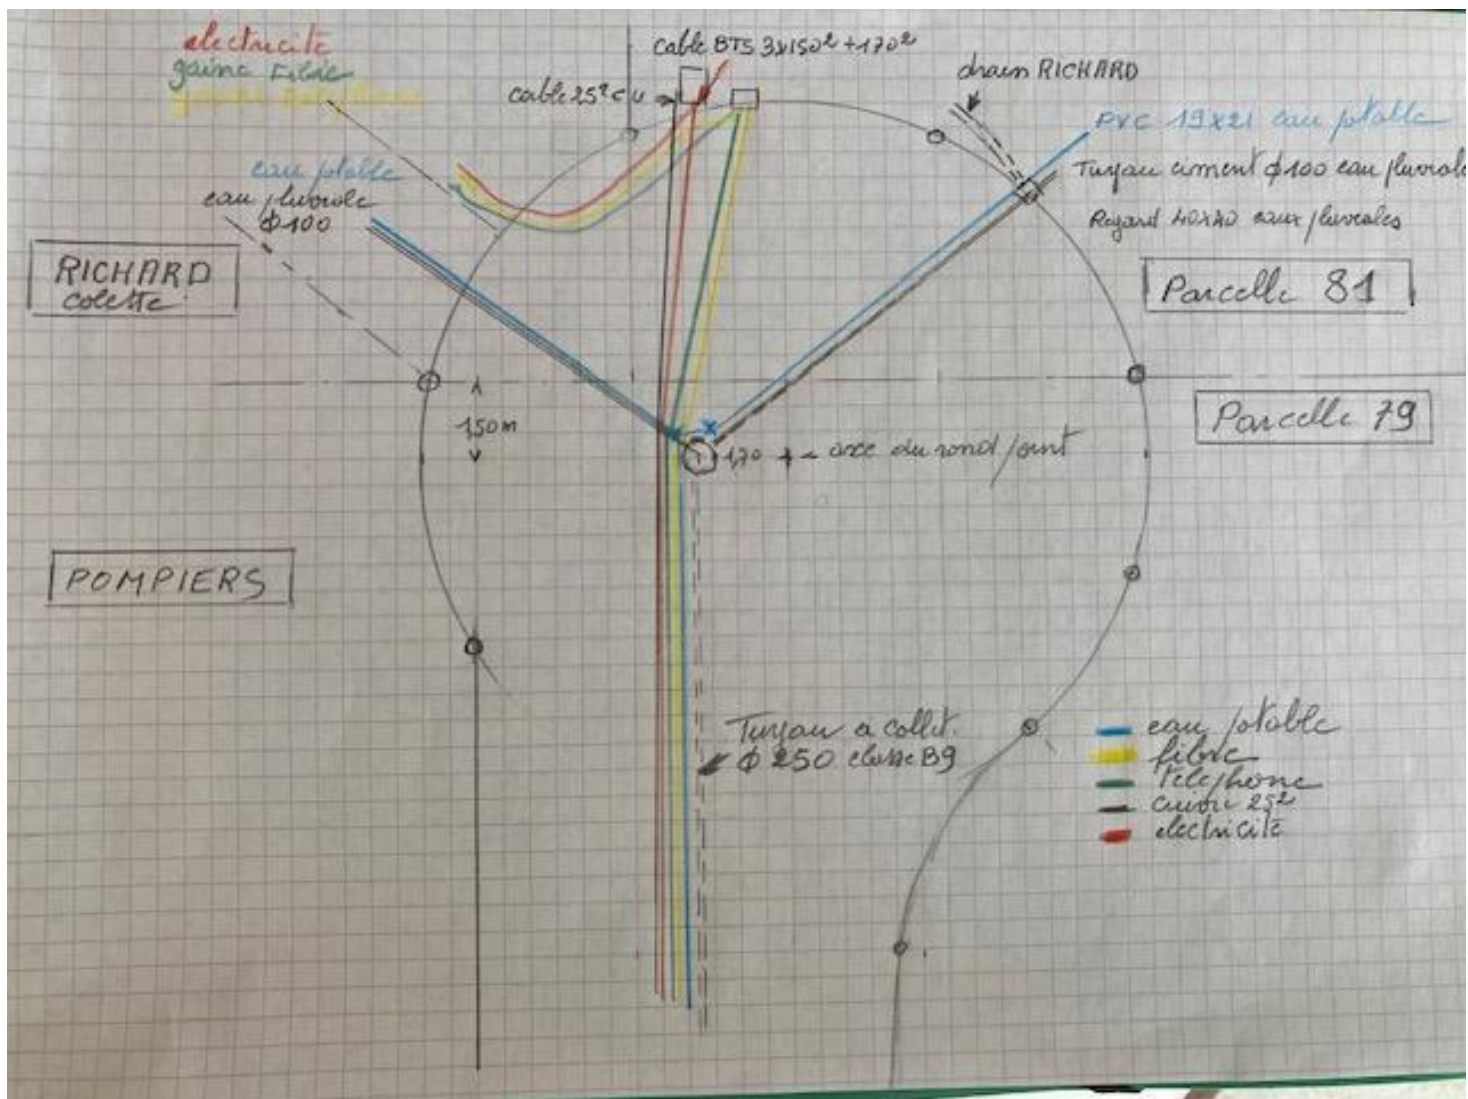 electricité
gaine Fibre
cable BTS 3x150² + 170²
cable 25² cu
drain RICHARD
PVC 19x21 eau potable
Tuyau ciment φ100 eau pluviale
Regard 40x40 eaux pluviales
eau potable
eau pluviale
φ100
RICHARD
Colette
Parcelle 81
Parcelle 79
1,50m
1,70
axe du rond point
POMPIERS
Tuyau à collet
φ 250 classe B9
eau potable
fibre
téléphone
cuivre 25²
electricité